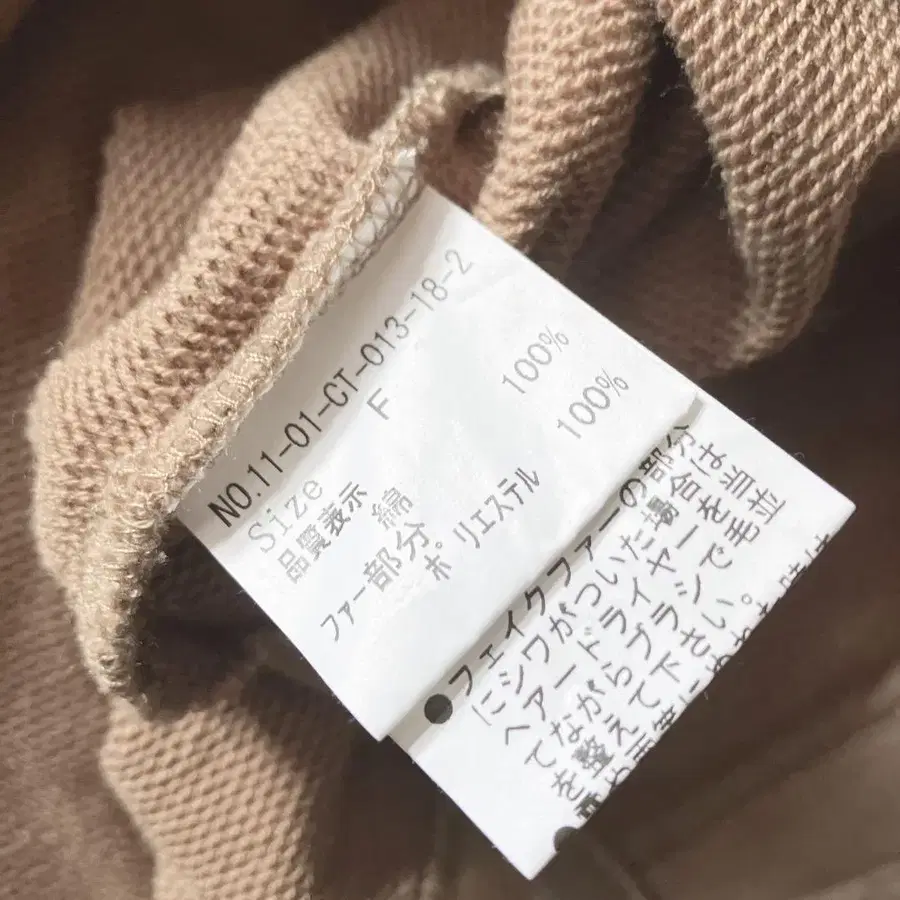 NO.11-01-CT-013-18-2
Size F
品質表示
綿 100%
ファー部分
ポリエステル 100%
●フェイクファーの部分
にシワがついた場合は当
ヘアードライヤーを
てながらブラシで毛並
を整えて下さい。